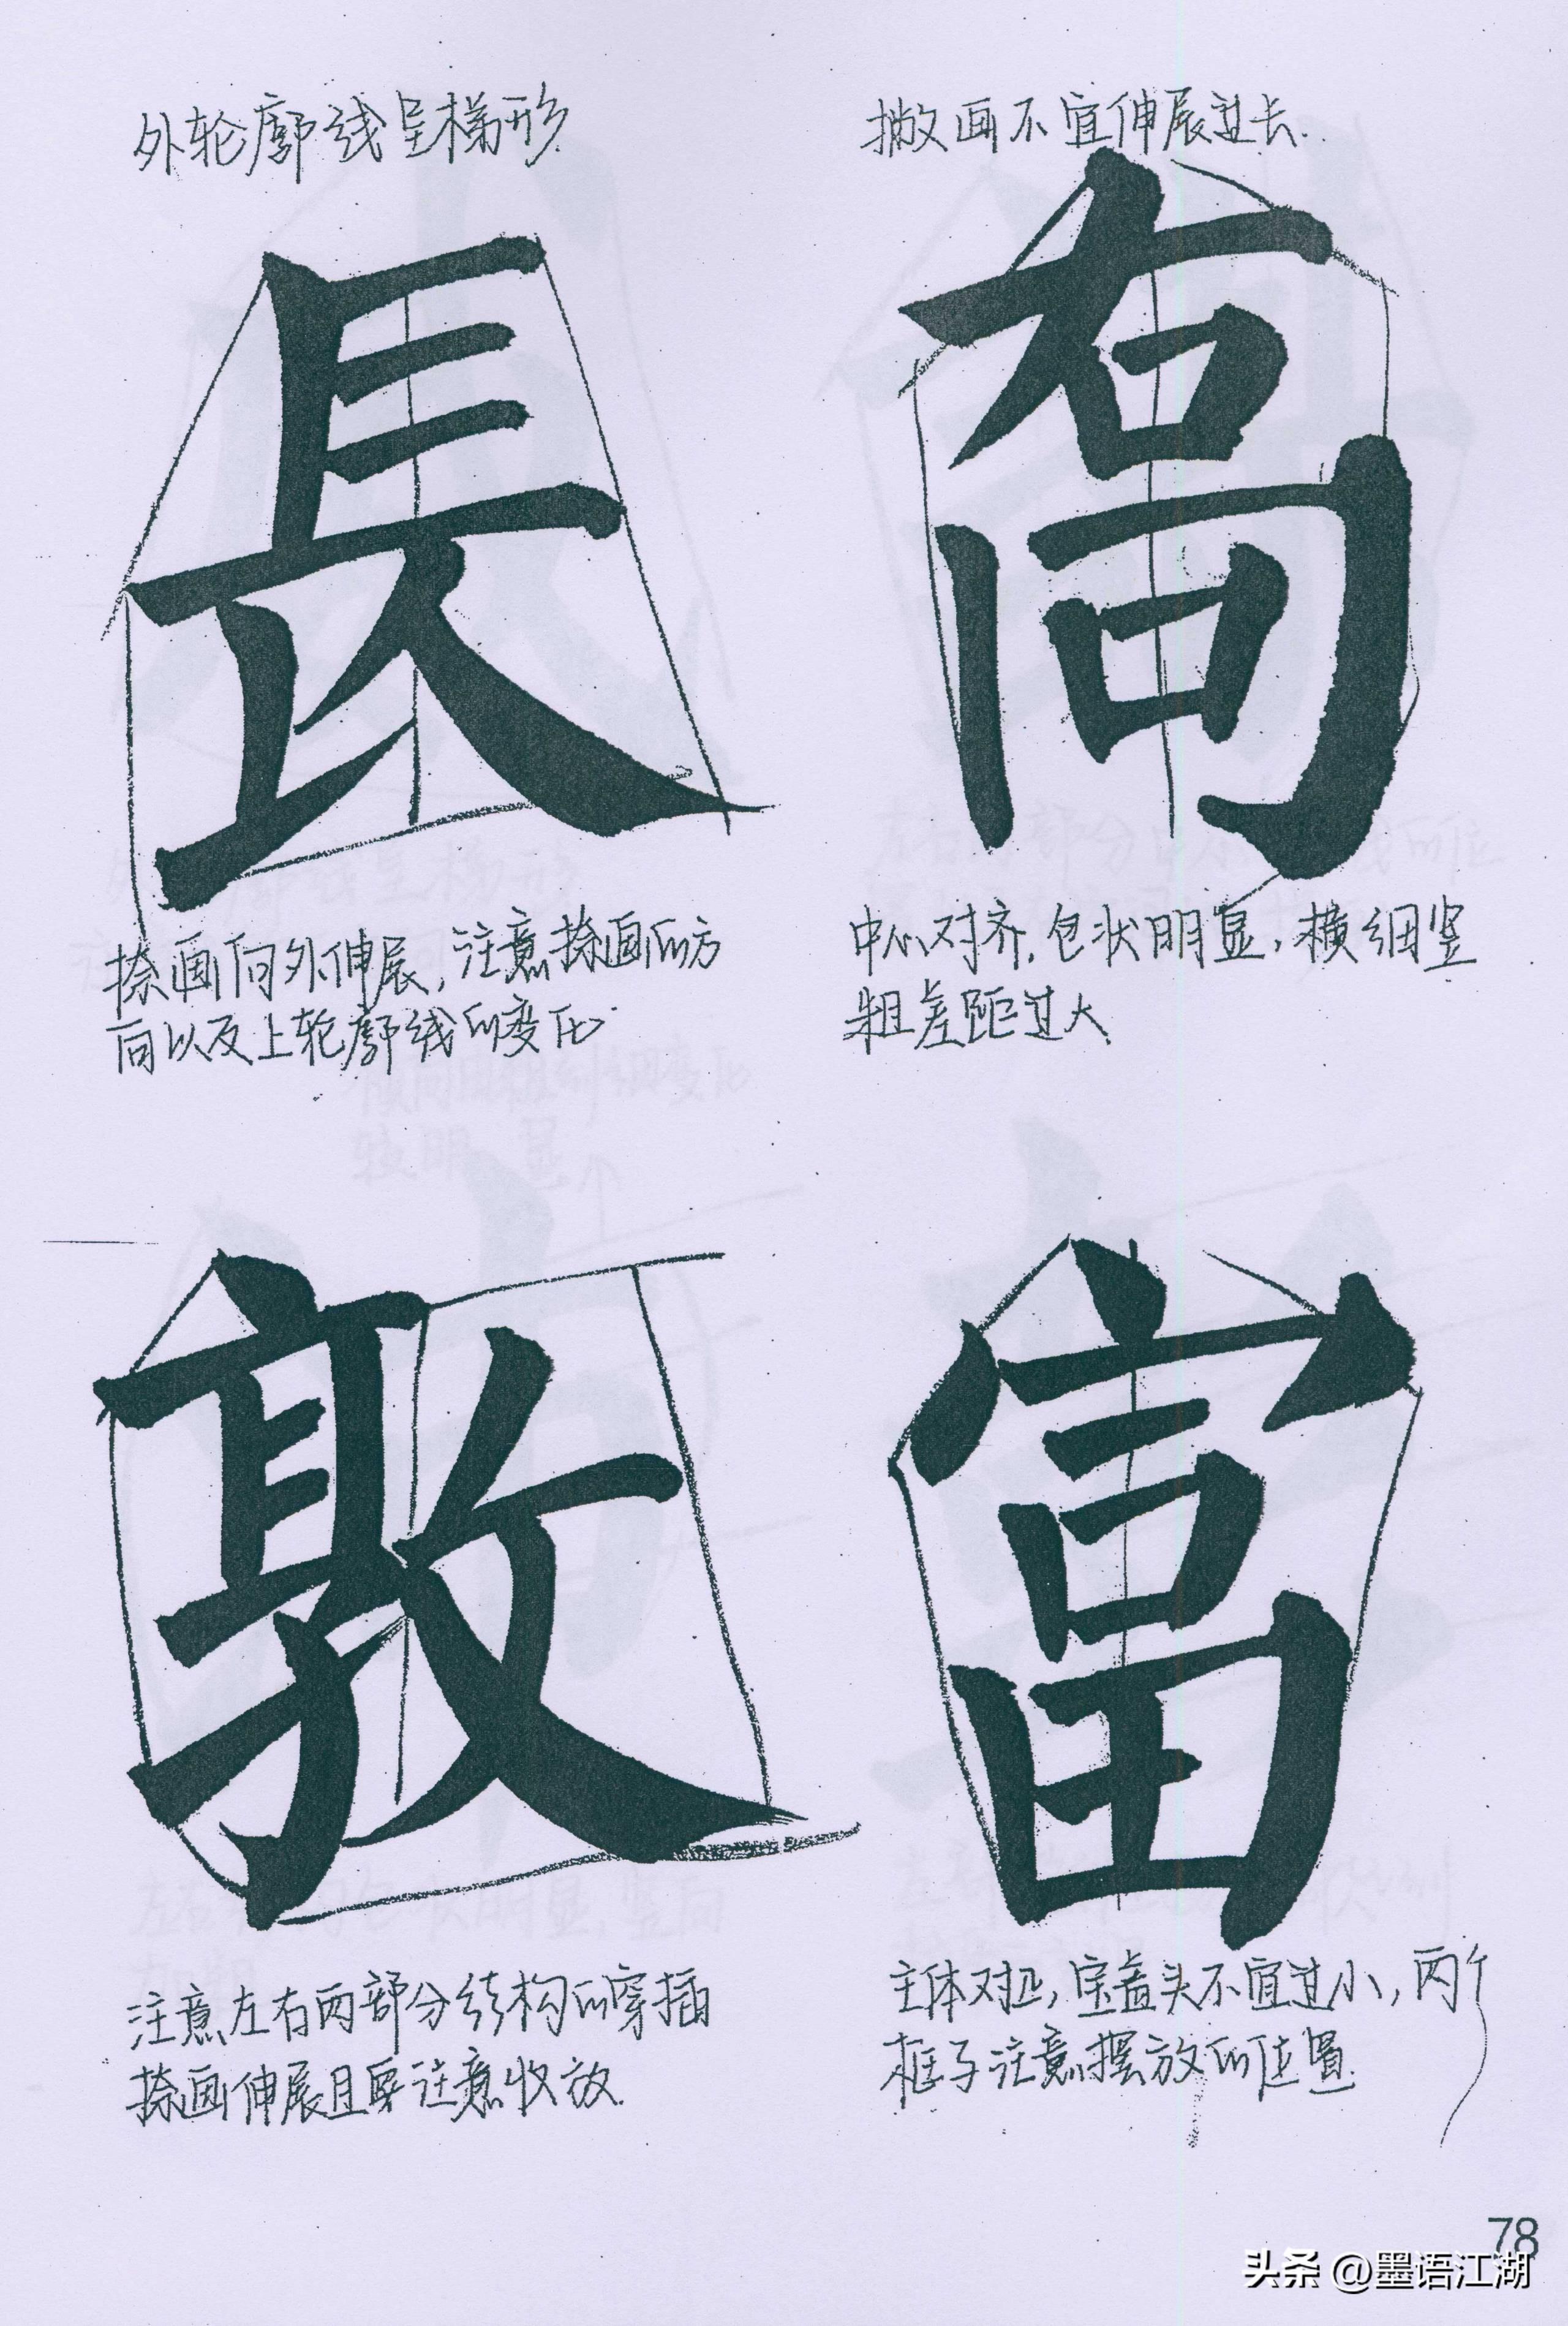 外轮廓线呈梯形
長
捺画向外伸展,注意捺画的方
向以及上轮廓线的变化
撇画不宜伸展过长.
中心对齐.包状明显,横细竖
粗差距过大
敦
注意左右两部分结构的穿插
捺画伸展且要注意收放.
富
主体对正,宝盖头不宜过小,两个
框子注意摆放的位置.
78
头条 @墨语江湖